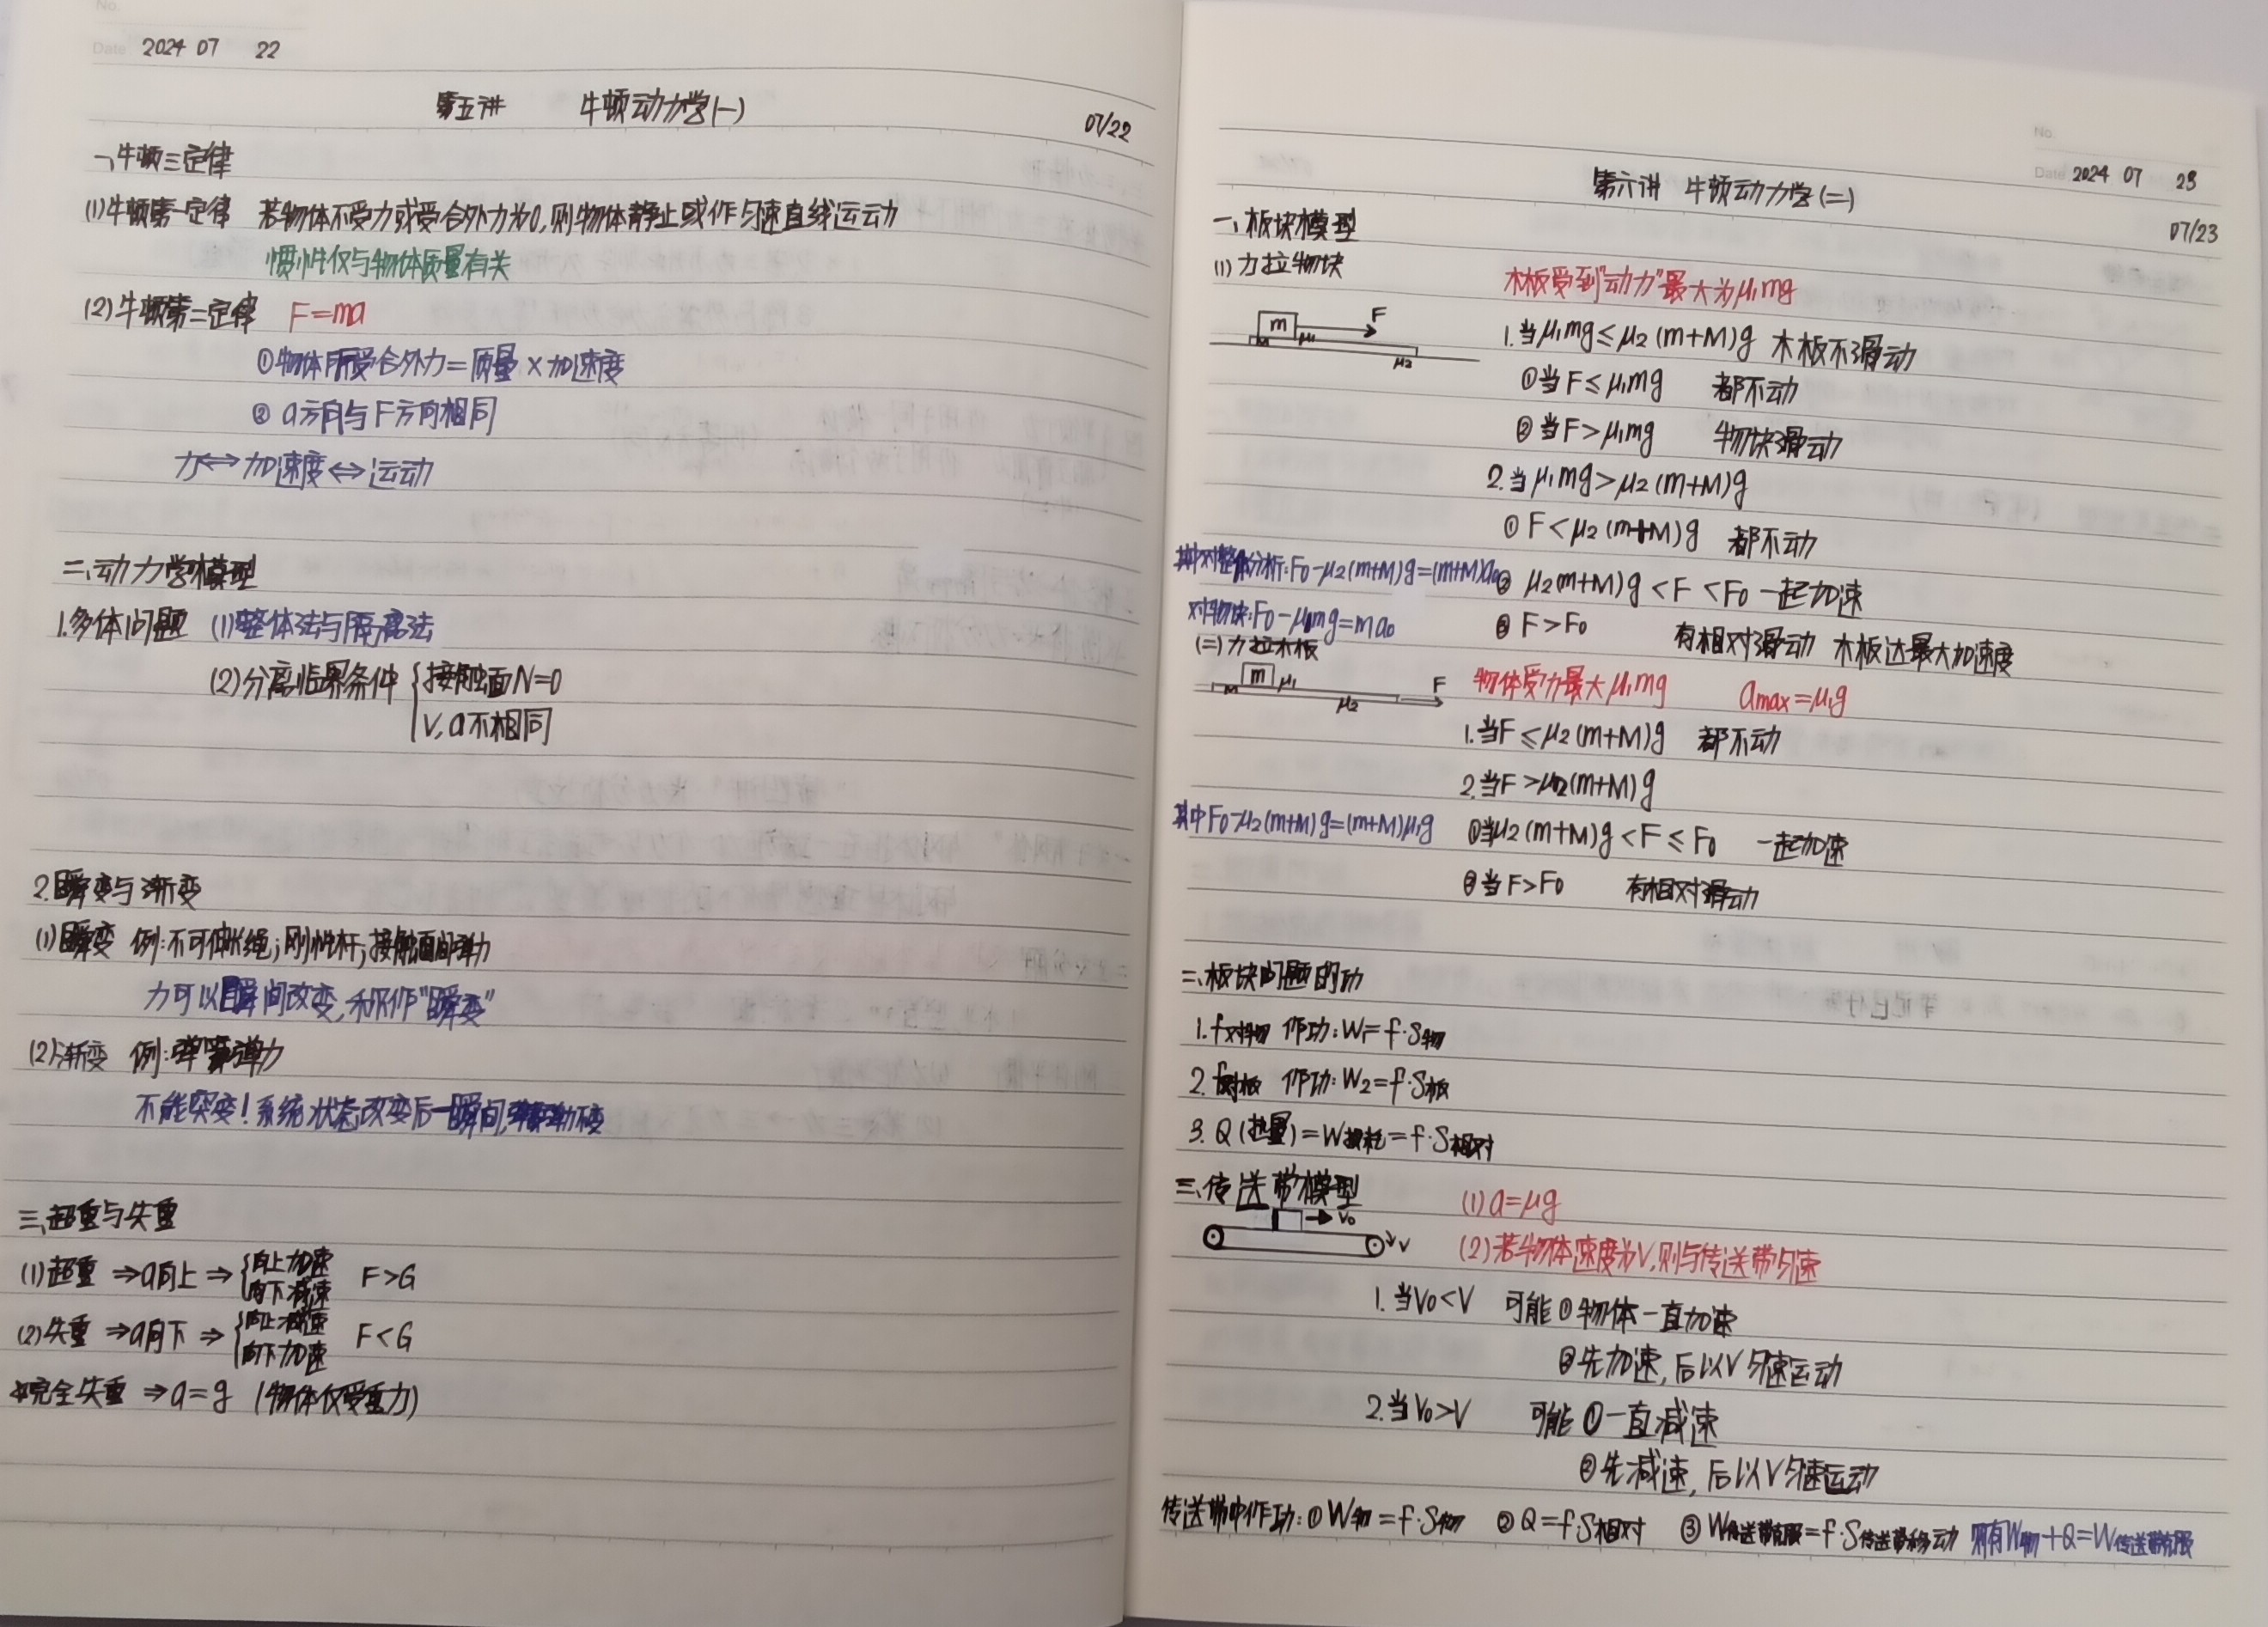 No.
Date 2024 07 22
第五讲 牛顿动力学(一)
07/22
一、牛顿三定律
(1)牛顿第一定律 若物体不受力或受合外力为0,则物体静止或作匀速直线运动
惯性仅与物体质量有关
(2)牛顿第二定律 F=ma
①物体所受合外力=质量×加速度
② a方向与F方向相同
力⇔加速度⇔运动
二、动力学模型
1.多体问题 (1)整体法与隔离法
(2)分离临界条件 { 接触面N=0
V,a不相同
2.瞬变与渐变
(1)瞬变 例:不可伸长绳;刚性杆;接触面间弹力
力可以瞬间改变,称作"瞬变"
(2)渐变 例:弹簧弹力
不能突变!系统状态改变后一瞬间,弹簧弹力不变
三、超重与失重
(1)超重 ⇒a向上⇒ { 向上加速
向下减速 F>G
(2)失重 ⇒a向下⇒ { 向上减速
向下加速 F<G
完全失重 ⇒a=g (物体仅受重力)
No.
Date 2024 07 23
第六讲 牛顿动力学(二)
07/23
一、板块模型
(1) 力拉物块
木板受到"动力"最大为μ₁mg
m F
M μ₁
μ₂
1.当μ₁mg≤μ₂(m+M)g 木板不滑动
①当F≤μ₁mg 都不动
②当F>μ₁mg 物块滑动
2.当μ₁mg>μ₂(m+M)g
① F<μ₂(m+M)g 都不动
其中对整体分析:F₀-μ₂(m+M)g=(m+M)a₀
② μ₂(m+M)g<F<F₀ 一起加速
对物块:F₀-μ₁mg=ma₀
③ F>F₀ 有相对滑动 木板达最大加速度
(二)力拉木板
m μ₁ F
M μ₂
物体受力最大μ₁mg amax=μ₁g
1.当F≤μ₂(m+M)g 都不动
2.当F>μ₂(m+M)g
其中F₀-μ₂(m+M)g=(m+M)μ₁g
①当μ₂(m+M)g<F≤F₀ 一起加速
②当F>F₀ 有相对滑动
二、板块问题的功
1. f对物 作功:W₁=f·S物
2. f对板 作功:W₂=f·S板
3. Q(热量)=W损耗=f·S相对
三、传送带模型
(1) a=μg
V₀
V
(2)若物体速度为V,则与传送带匀速
1.当V₀<V 可能①物体一直加速
②先加速,后以V匀速运动
2.当V₀>V 可能①一直减速
②先减速,后以V匀速运动
传送带中作功:①W物=f·S物 ②Q=f·S相对 ③W传送带克服=f·S传送带移动 则有W物+Q=W传送带克服